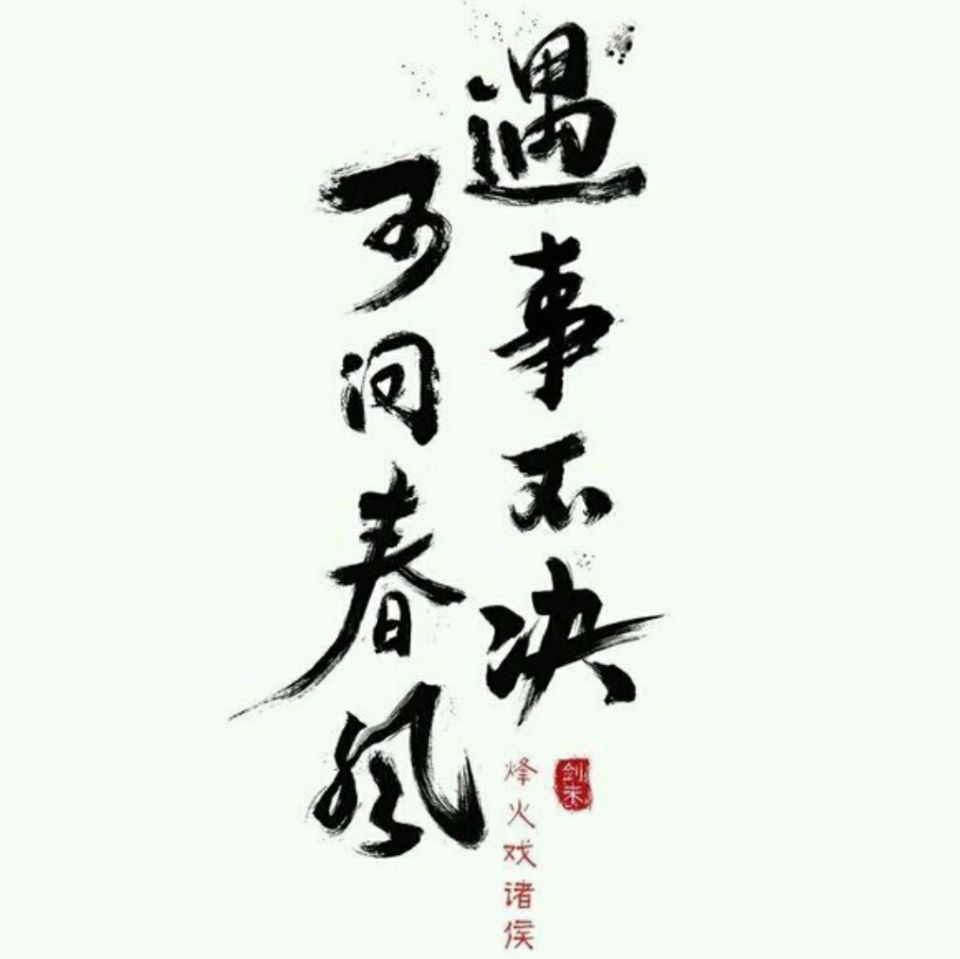 遇事不决
可问春风
剑来
烽火戏诸侯